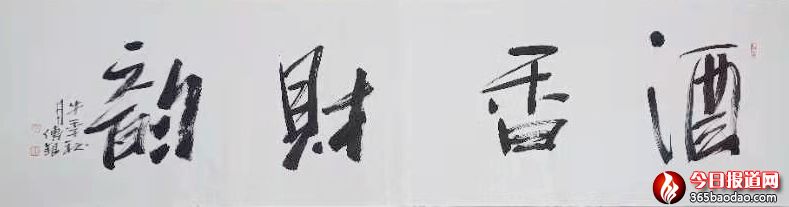 酒香財韵
牛年秋
月
今日报道网
365baodao.com